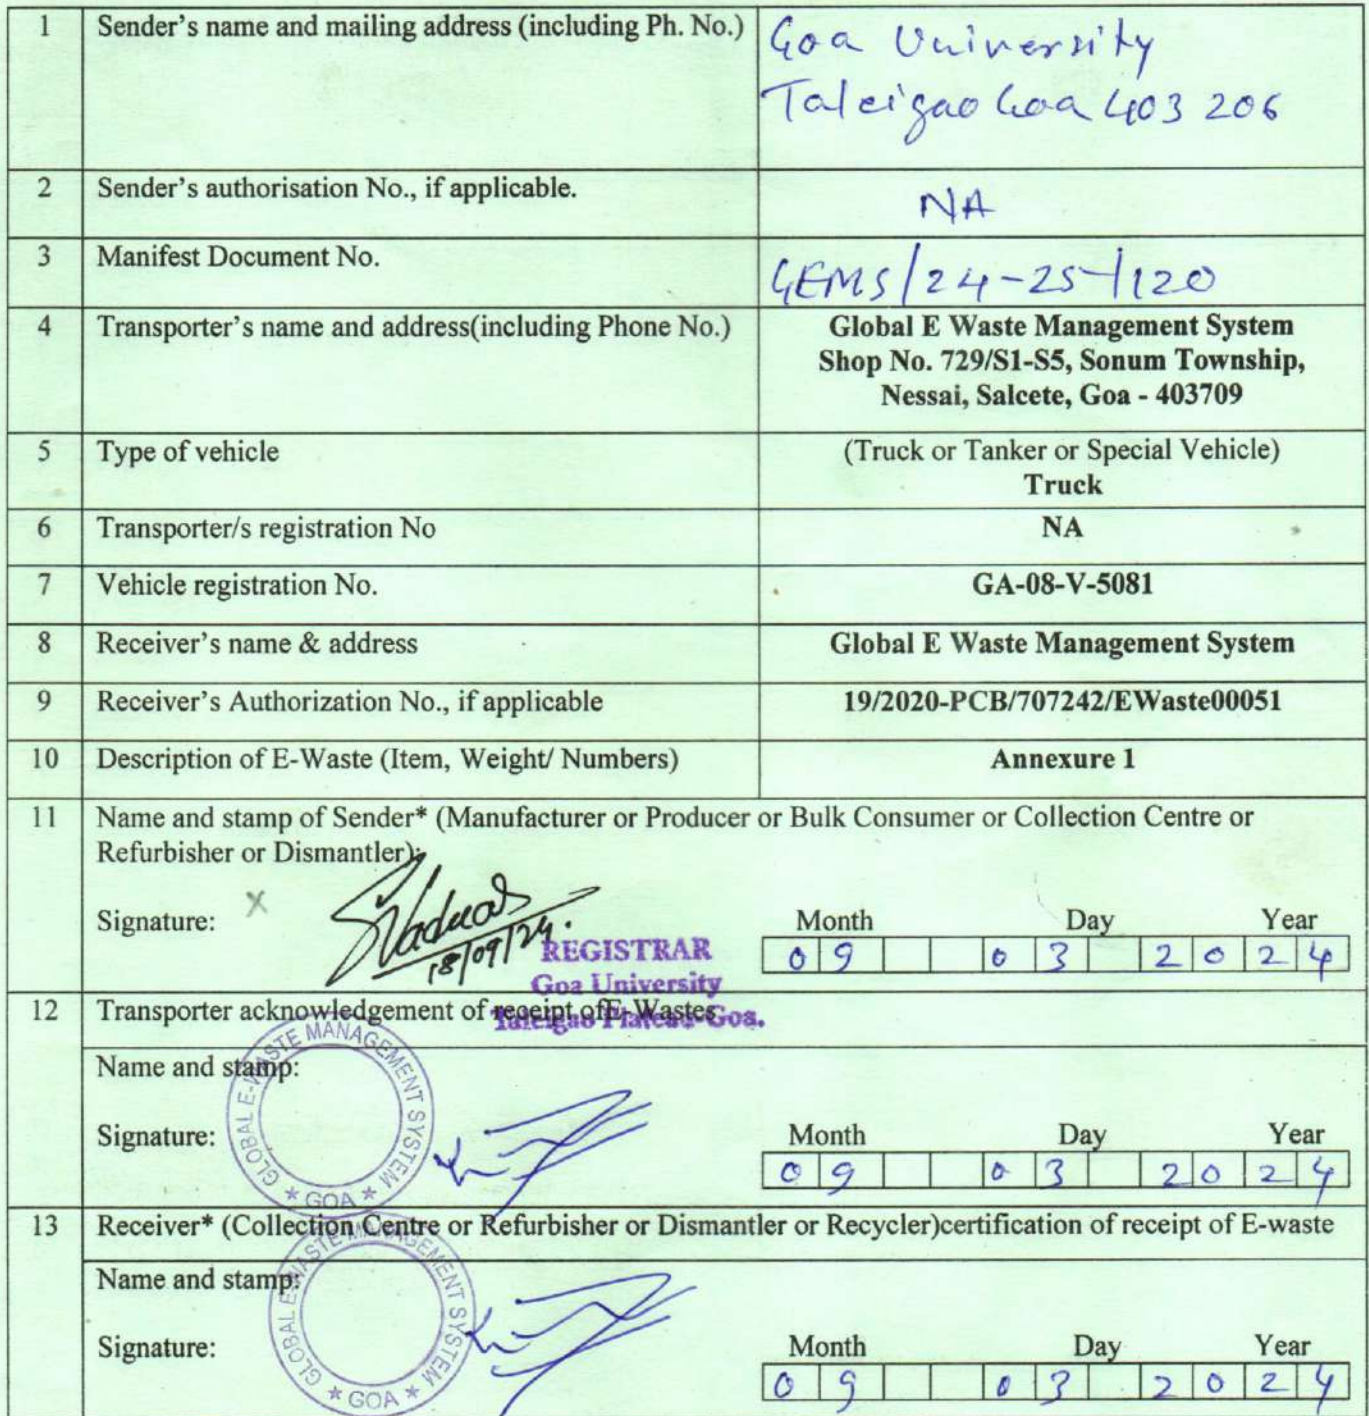 1 Sender's name and mailing address (including Ph. No.) Goa University
Taleigao Goa 403 206
2 Sender's authorisation No., if applicable. NA
3 Manifest Document No. GEMS/24-25/120
4 Transporter's name and address(including Phone No.) Global E Waste Management System
Shop No. 729/S1-S5, Sonum Township,
Nessai, Salcete, Goa - 403709
5 Type of vehicle (Truck or Tanker or Special Vehicle)
Truck
6 Transporter/s registration No NA
7 Vehicle registration No. GA-08-V-5081
8 Receiver's name & address Global E Waste Management System
9 Receiver's Authorization No., if applicable 19/2020-PCB/707242/EWaste00051
10 Description of E-Waste (Item, Weight/ Numbers) Annexure 1
11 Name and stamp of Sender* (Manufacturer or Producer or Bulk Consumer or Collection Centre or
Refurbisher or Dismantler):
Signature: X Month Day Year
18/09/24.
REGISTRAR 09 03 2024
Goa University
Taleigao Plateau-Goa.
12 Transporter acknowledgement of receipt ofE-Wastes
Name and stamp:
GLOBAL E-WASTE MANAGEMENT SYSTEM
* GOA *
Signature: Month Day Year
09 03 2024
13 Receiver* (Collection Centre or Refurbisher or Dismantler or Recycler)certification of receipt of E-waste
Name and stamp:
GLOBAL E-WASTE MANAGEMENT SYSTEM
* GOA *
Signature: Month Day Year
09 03 2024